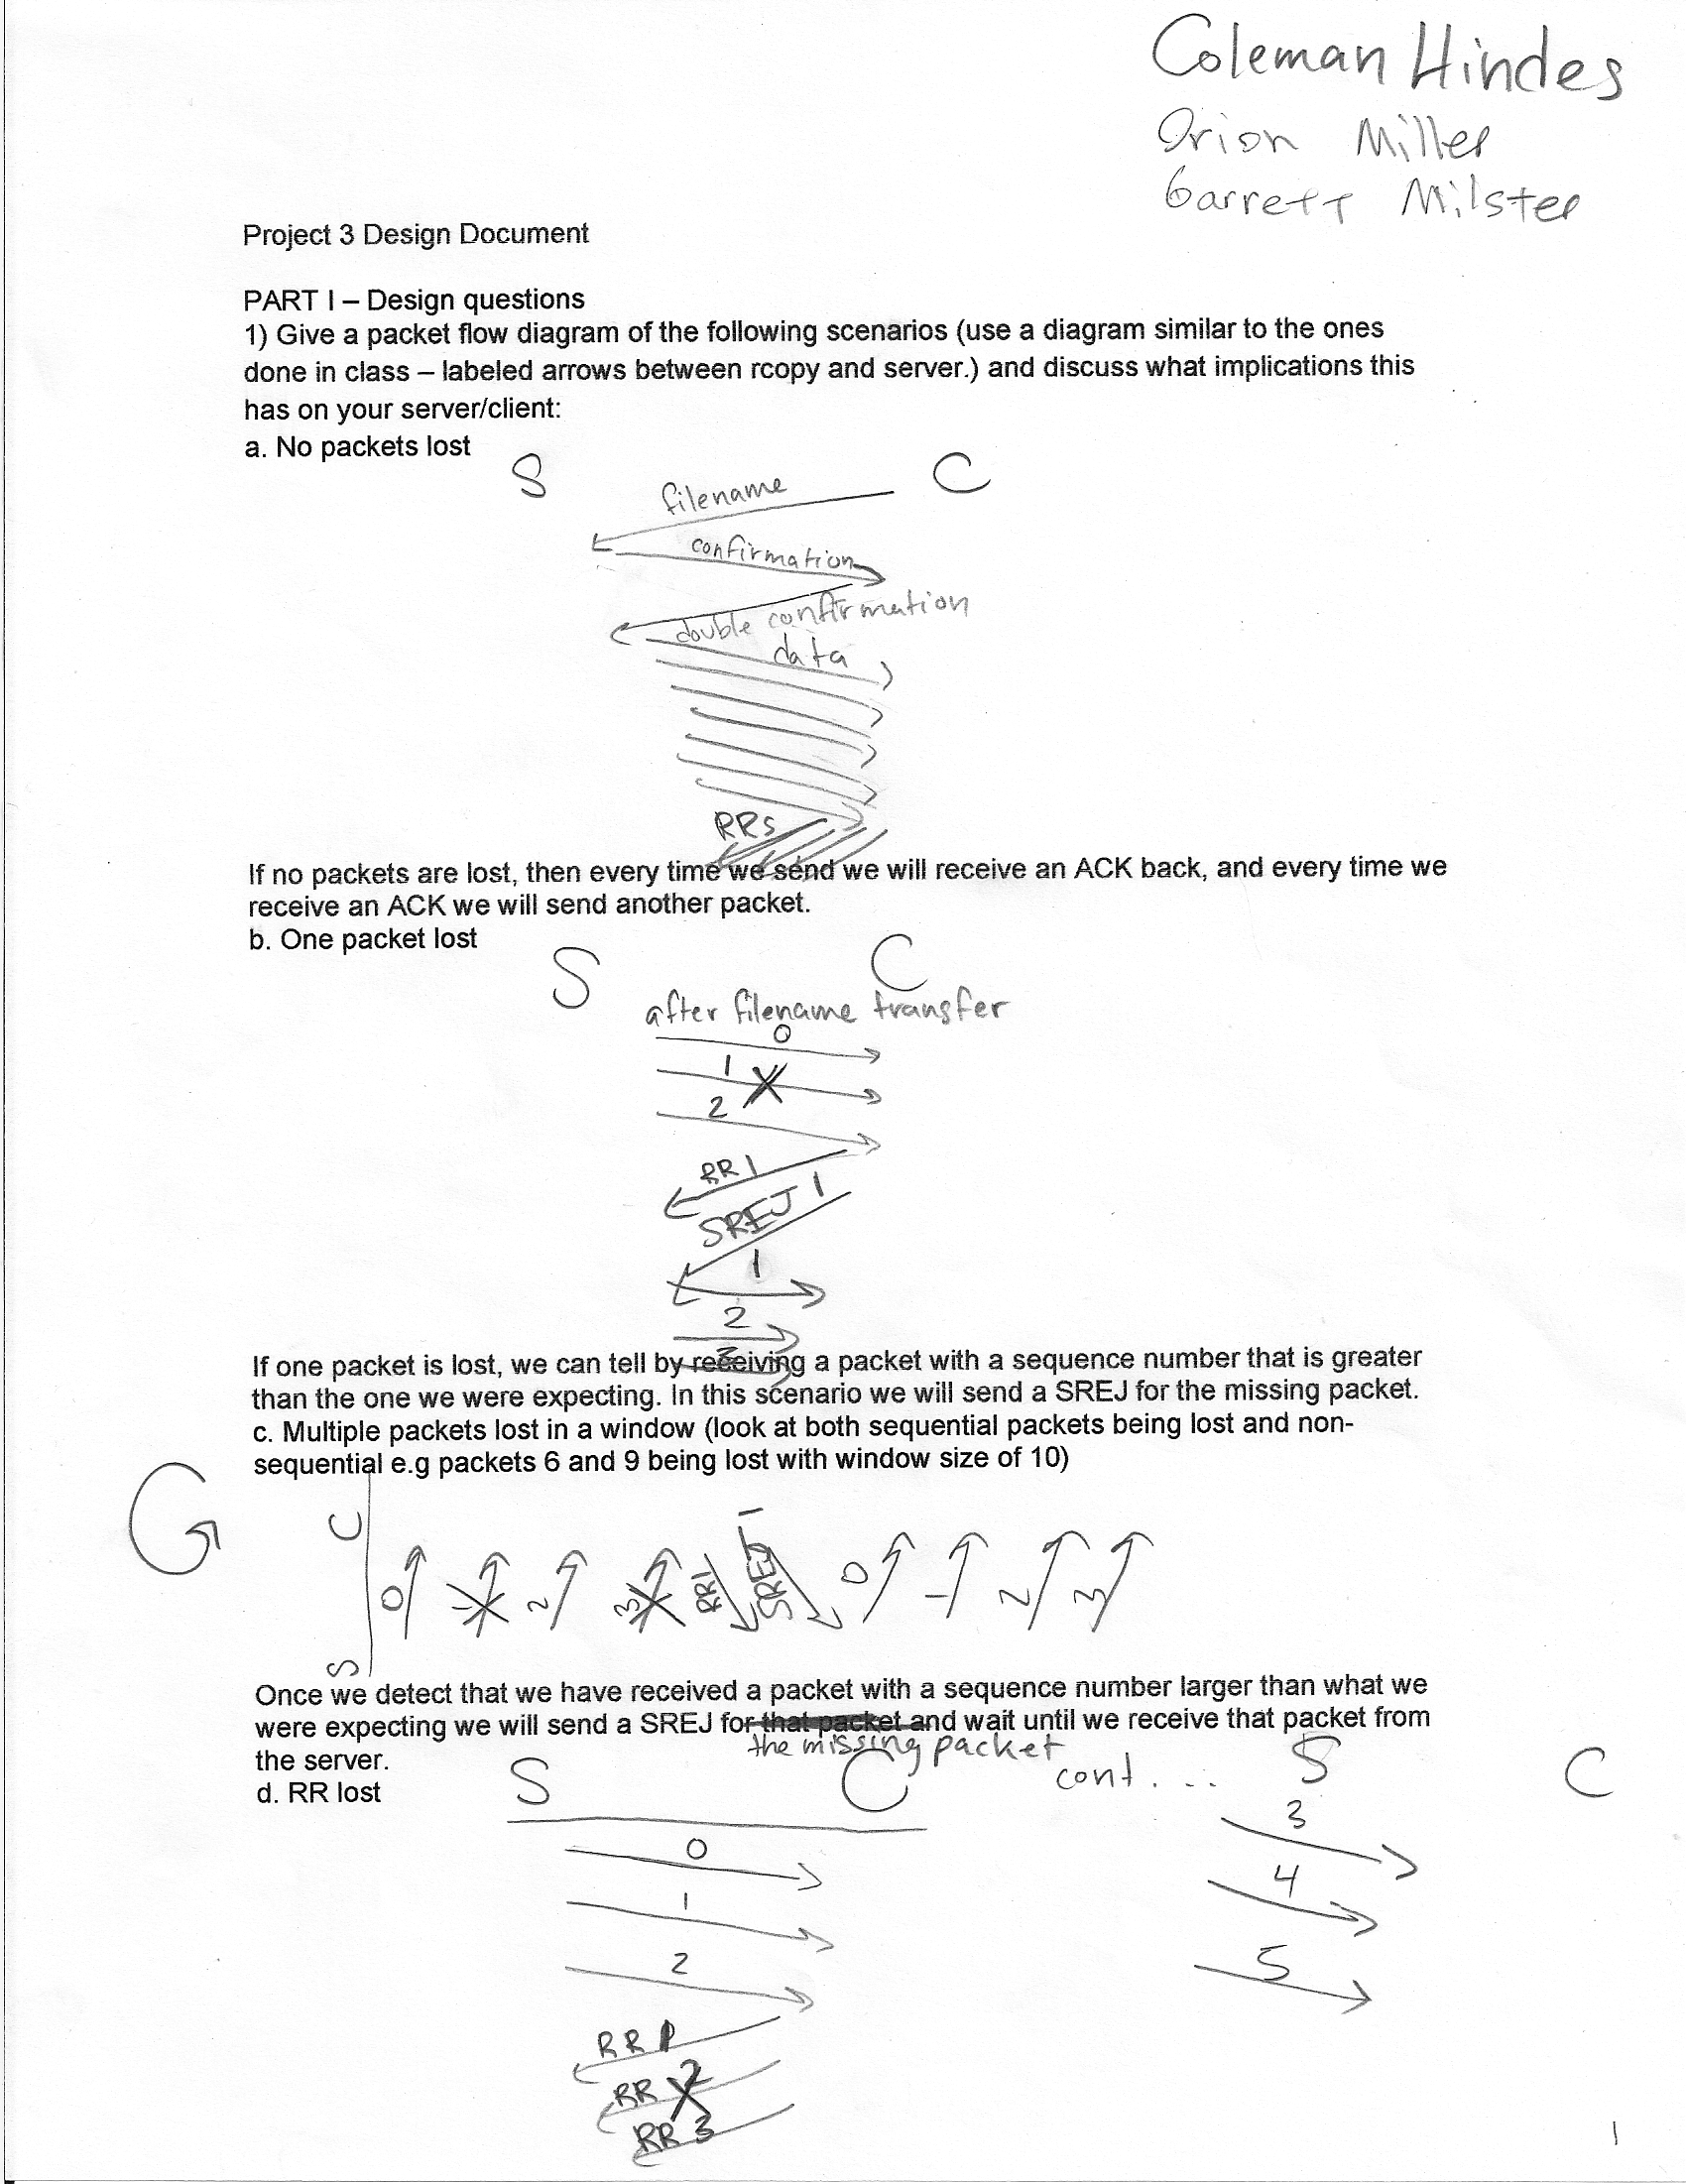 Coleman Hindes
Orion Miller
Garrett Milster
Project 3 Design Document
PART I – Design questions
1) Give a packet flow diagram of the following scenarios (use a diagram similar to the ones
done in class – labeled arrows between rcopy and server.) and discuss what implications this
has on your server/client:
a. No packets lost
S C
filename
confirmation
double confirmation
data
RRs
If no packets are lost, then every time we send we will receive an ACK back, and every time we
receive an ACK we will send another packet.
b. One packet lost
S C
after filename transfer
0
1
2
RR 1
SREJ 1
1
2
3
If one packet is lost, we can tell by receiving a packet with a sequence number that is greater
than the one we were expecting. In this scenario we will send a SREJ for the missing packet.
c. Multiple packets lost in a window (look at both sequential packets being lost and non-
sequential e.g packets 6 and 9 being lost with window size of 10)
C
0 1 2 3 RR1 SREJ 1 0 1 2 3
S
Once we detect that we have received a packet with a sequence number larger than what we
were expecting we will send a SREJ for that packet and wait until we receive that packet from
the missing packet
the server.
d. RR lost
S C
0
1
2
RR 1
RR 2
RR 3
cont. ... S C
3
4
5
1